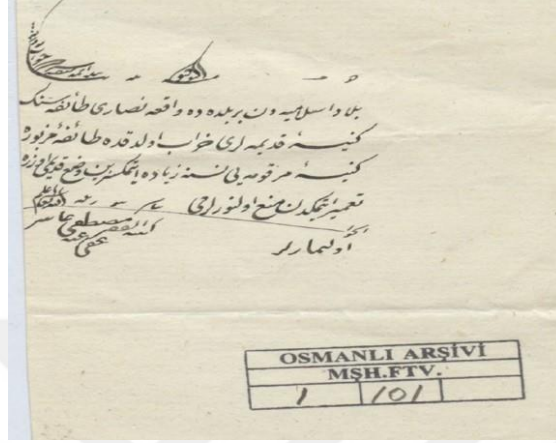 بلاد اسلامیه دن بر بلده ده واقعه نصاری طائفه سنك
كنیسهٔ قدیمه لری خراب اولدقده طائفهٔ مزبوره
كنیسهٔ مرقومه یی نسنه زیاده ایتمكسزین وضع قدیمی اوزره
تعمیر ایتمكدن منع اولنورلرمی
الجواب
اولنمازلر
كتبه الفقیر مصطفی عاشر
عفی عنه
OSMANLI ARŞİVİ
MŞH.FTV.
1 101